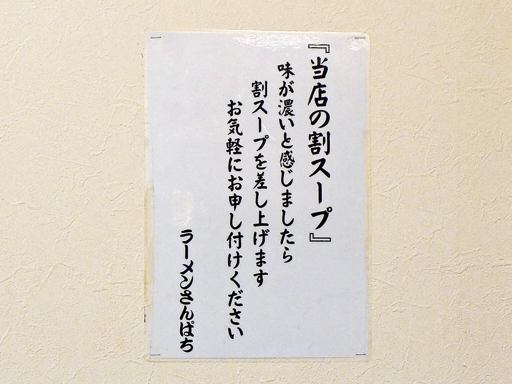 『当店の割スープ』
味が濃いと感じましたら
割スープを差し上げます
お気軽にお申し付けください
ラーメンさんぱち